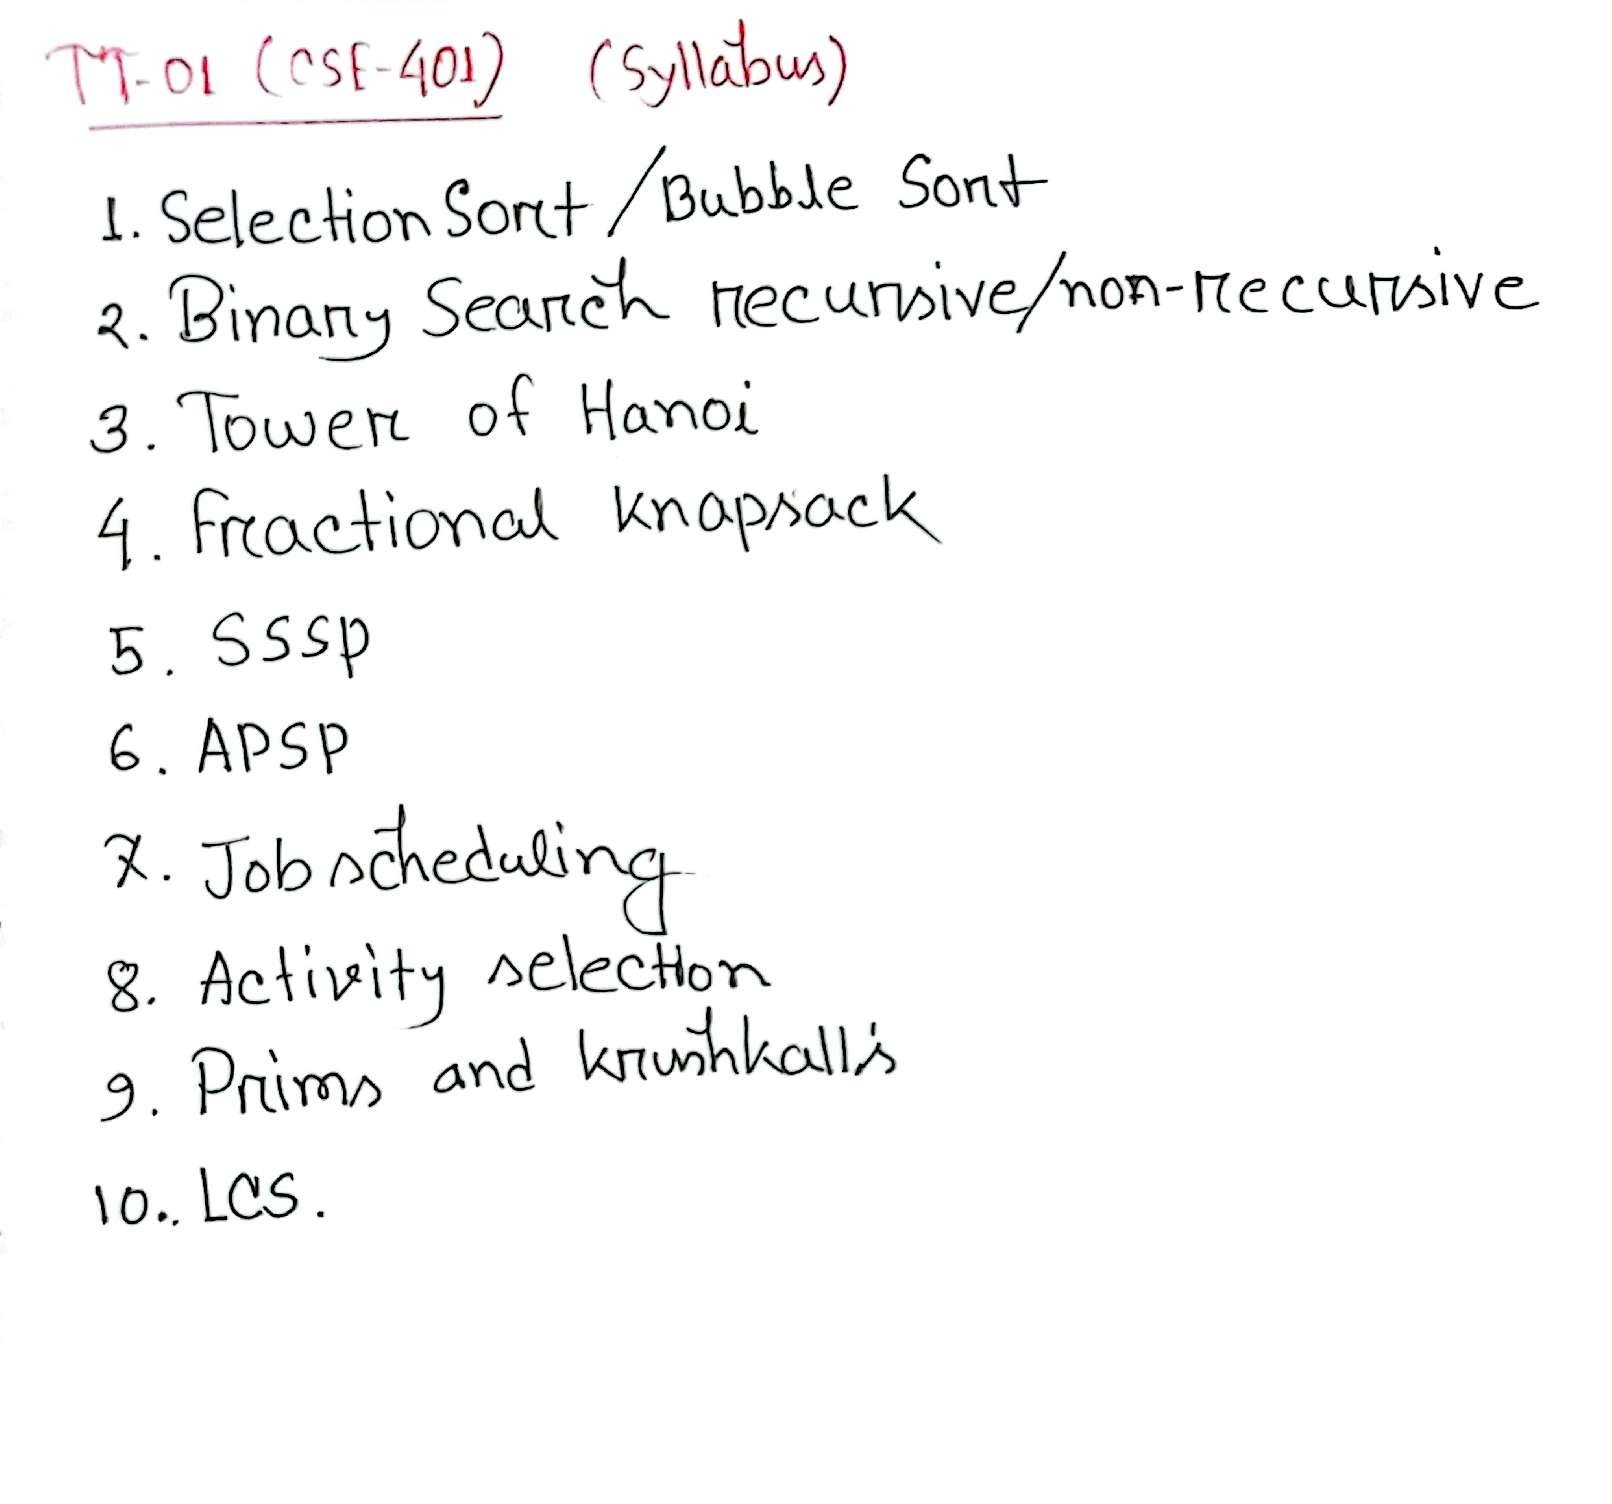 TT-01 (CSE-401) (Syllabus)
1. Selection Sort / Bubble Sort
2. Binary Search recursive/non-recursive
3. Tower of Hanoi
4. Fractional knapsack
5. SSSP
6. APSP
7. Job scheduling
8. Activity selection
9. Prims and krushkall's
10. LCS.